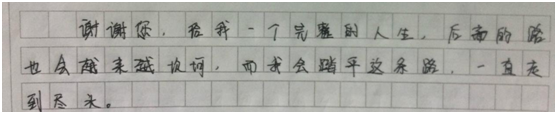 谢谢你,给我一个完整的人生,后面的路
也会越来越坎坷,而我会踏平这条路,一直走
到尽头。